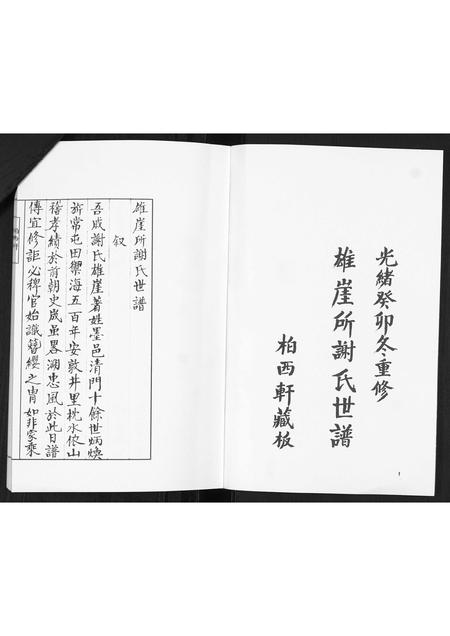 光緒癸卯冬重修
雄崖所謝氏世譜
柏西軒藏板
1
雄崖所謝氏世譜
叙
吾咸謝氏雄崖著姓墨邑清門十餘世炳煥
旂常屯田禦海五百年安敦井里枕水依山
稽孝績於前朝史咸虽畧溯忠風於此日譜
傳宜修詎必稗官始識簪纓之冑如非家乘